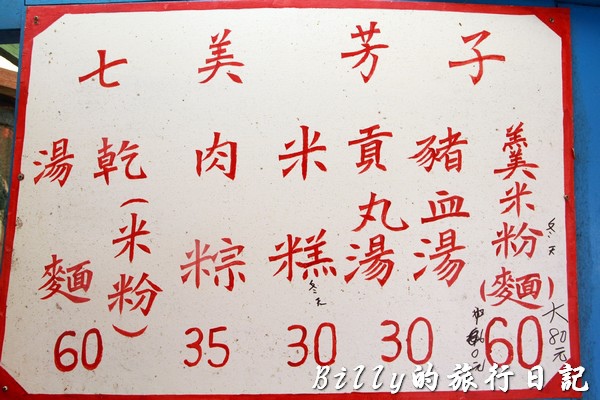 七美芳子
湯麵
乾(米粉)
60
肉粽
35
米糕
冬天
30
貢丸湯
豬血湯
30
羹米粉(麵)
冬天
60
大80元
Billy的旅行日記